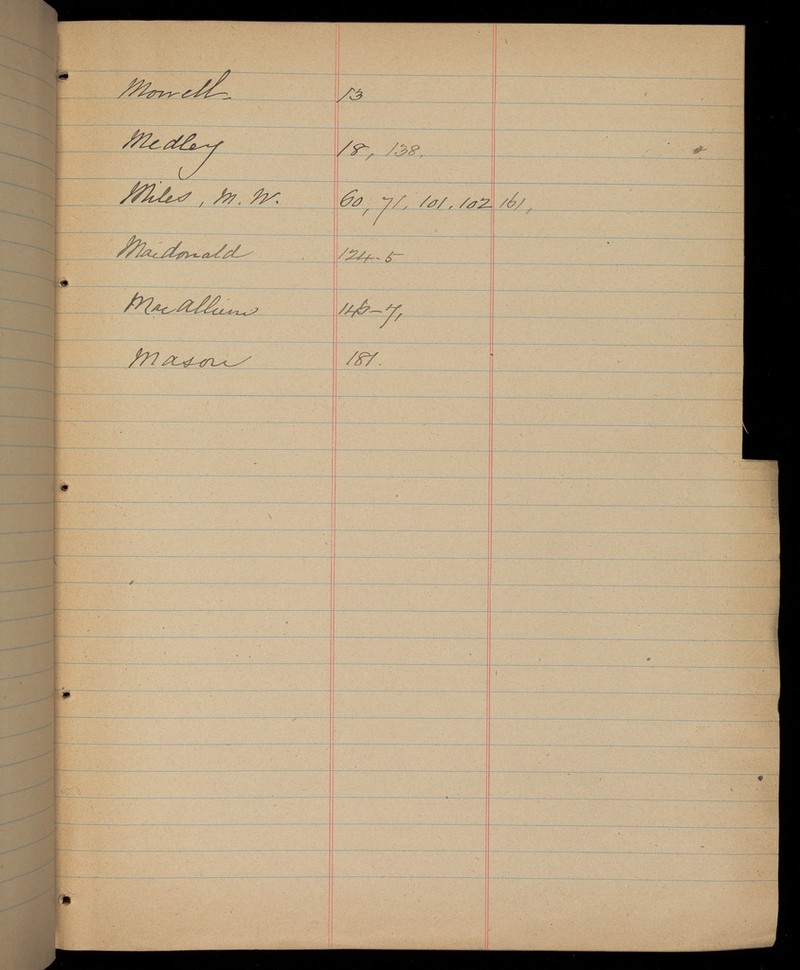 Morrell 13
Medley 18, 138.
Miles, M. W. 60, 71, 101, 102 161,
Macdonald 124-5
MacAllum -7,
Mason 181.